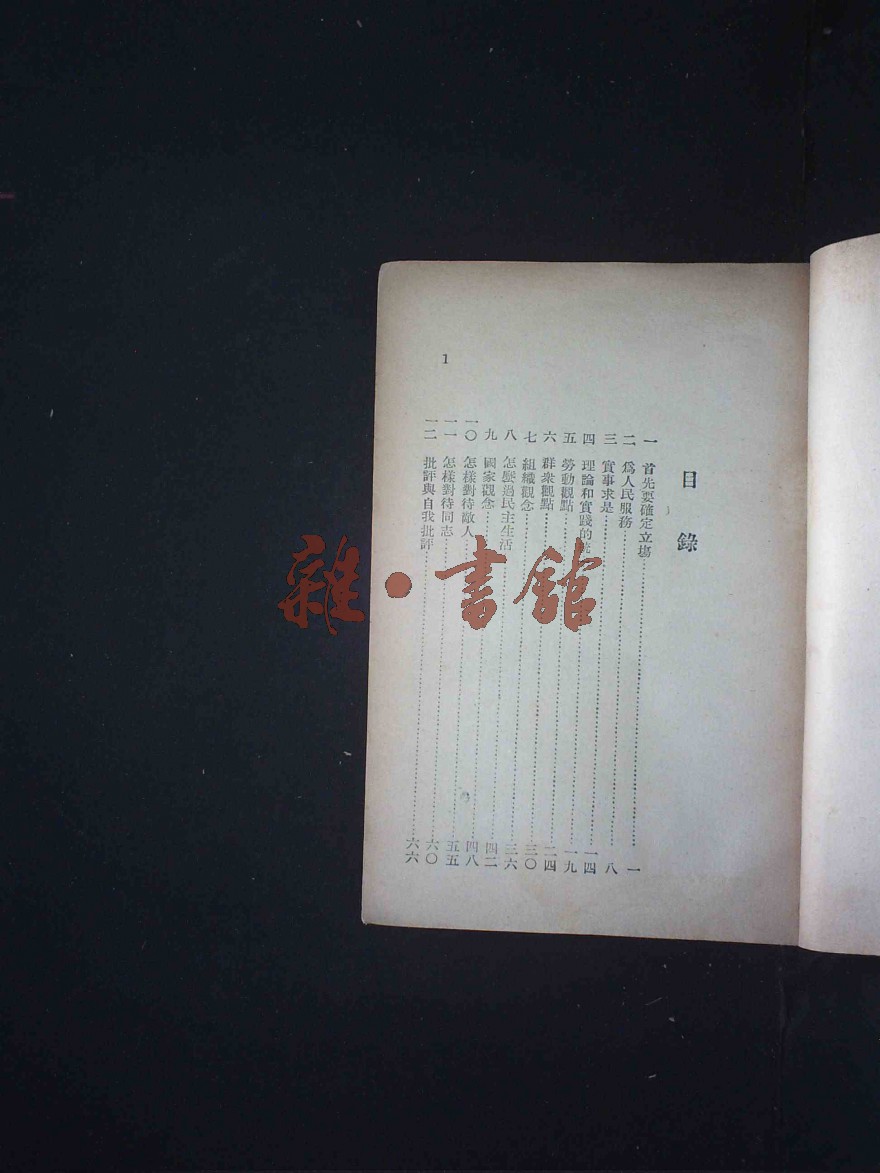 目錄
一 首先要確定立場 一
二 爲人民服務 八
三 實事求是 一四
四 理論和實踐的 一九
五 勞動觀點 二四
六 群衆觀點 三〇
七 組織觀念 三六
八 怎麼過民主生活 四二
九 國家觀念 四八
一〇 怎樣對待敵人 五五
一一 怎樣對待同志 六〇
一二 批評與自我批評 六六
1
雜·書館